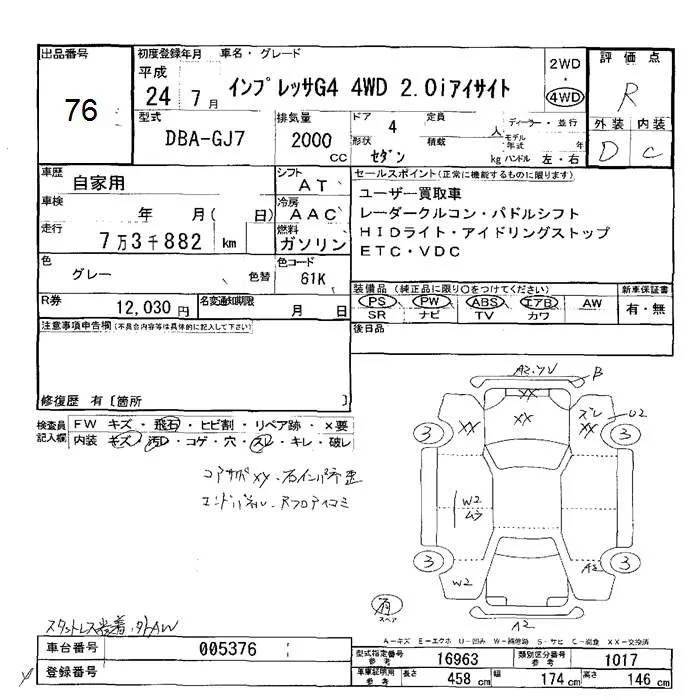 出品番号
76
初度登録年月
平成
24 7月
車名・グレード
インプレッサG4 4WD 2.0iアイサイト
2WD
・
4WD
評価点
R
外装 内装
D C
型式
DBA-GJ7
排気量
2000
CC
ドア 4
形状 セダン
定員 人
積載 kg
ディーラー・並行
モデル年式 年
ハンドル 左・右
車歴
自家用
シフト
AT
車検
年 月( 日)
冷房
AAC
走行
7万3千882 km
燃料
ガソリン
色
グレー
色替
色コード
61K
R券
12,030円
名変通知期限
月 日
セールスポイント(正常に機能するものに限ります)
ユーザー買取車
レーダークルコン・パドルシフト
HIDライト・アイドリングストップ
ETC・VDC
装備品(純正品に限り○をつけてください)
新車保証書
PS PW ABS エアB AW
SR ナビ TV カワ
有・無
後日品
注意事項申告欄(不具合内容等は具体的に記入して下さい)
修復歴 有[箇所 ]
検査員記入欄
FW キズ・飛石・ヒビ割・リペア跡・×要
内装 キズ・汚D・コゲ・穴・スレ・キレ・破レ
コアサポXX・右インパネ歪
エンドパネル、Rフロア
A2 B
XX
XX XX
ズレ U2
3 3
W2
ムラ
3 3
W2 A2
有
スペア
A2
スタットレス装着・
A-キズ E-エクボ U-凹み W-補修跡 S-サビ C-腐食 XX-交換済
車台番号
005376
登録番号
型式指定番号
参考
16963
類別区分番号
参考
1017
車庫証明用
参考
長さ 458 cm
幅 174 cm
高さ 146 cm